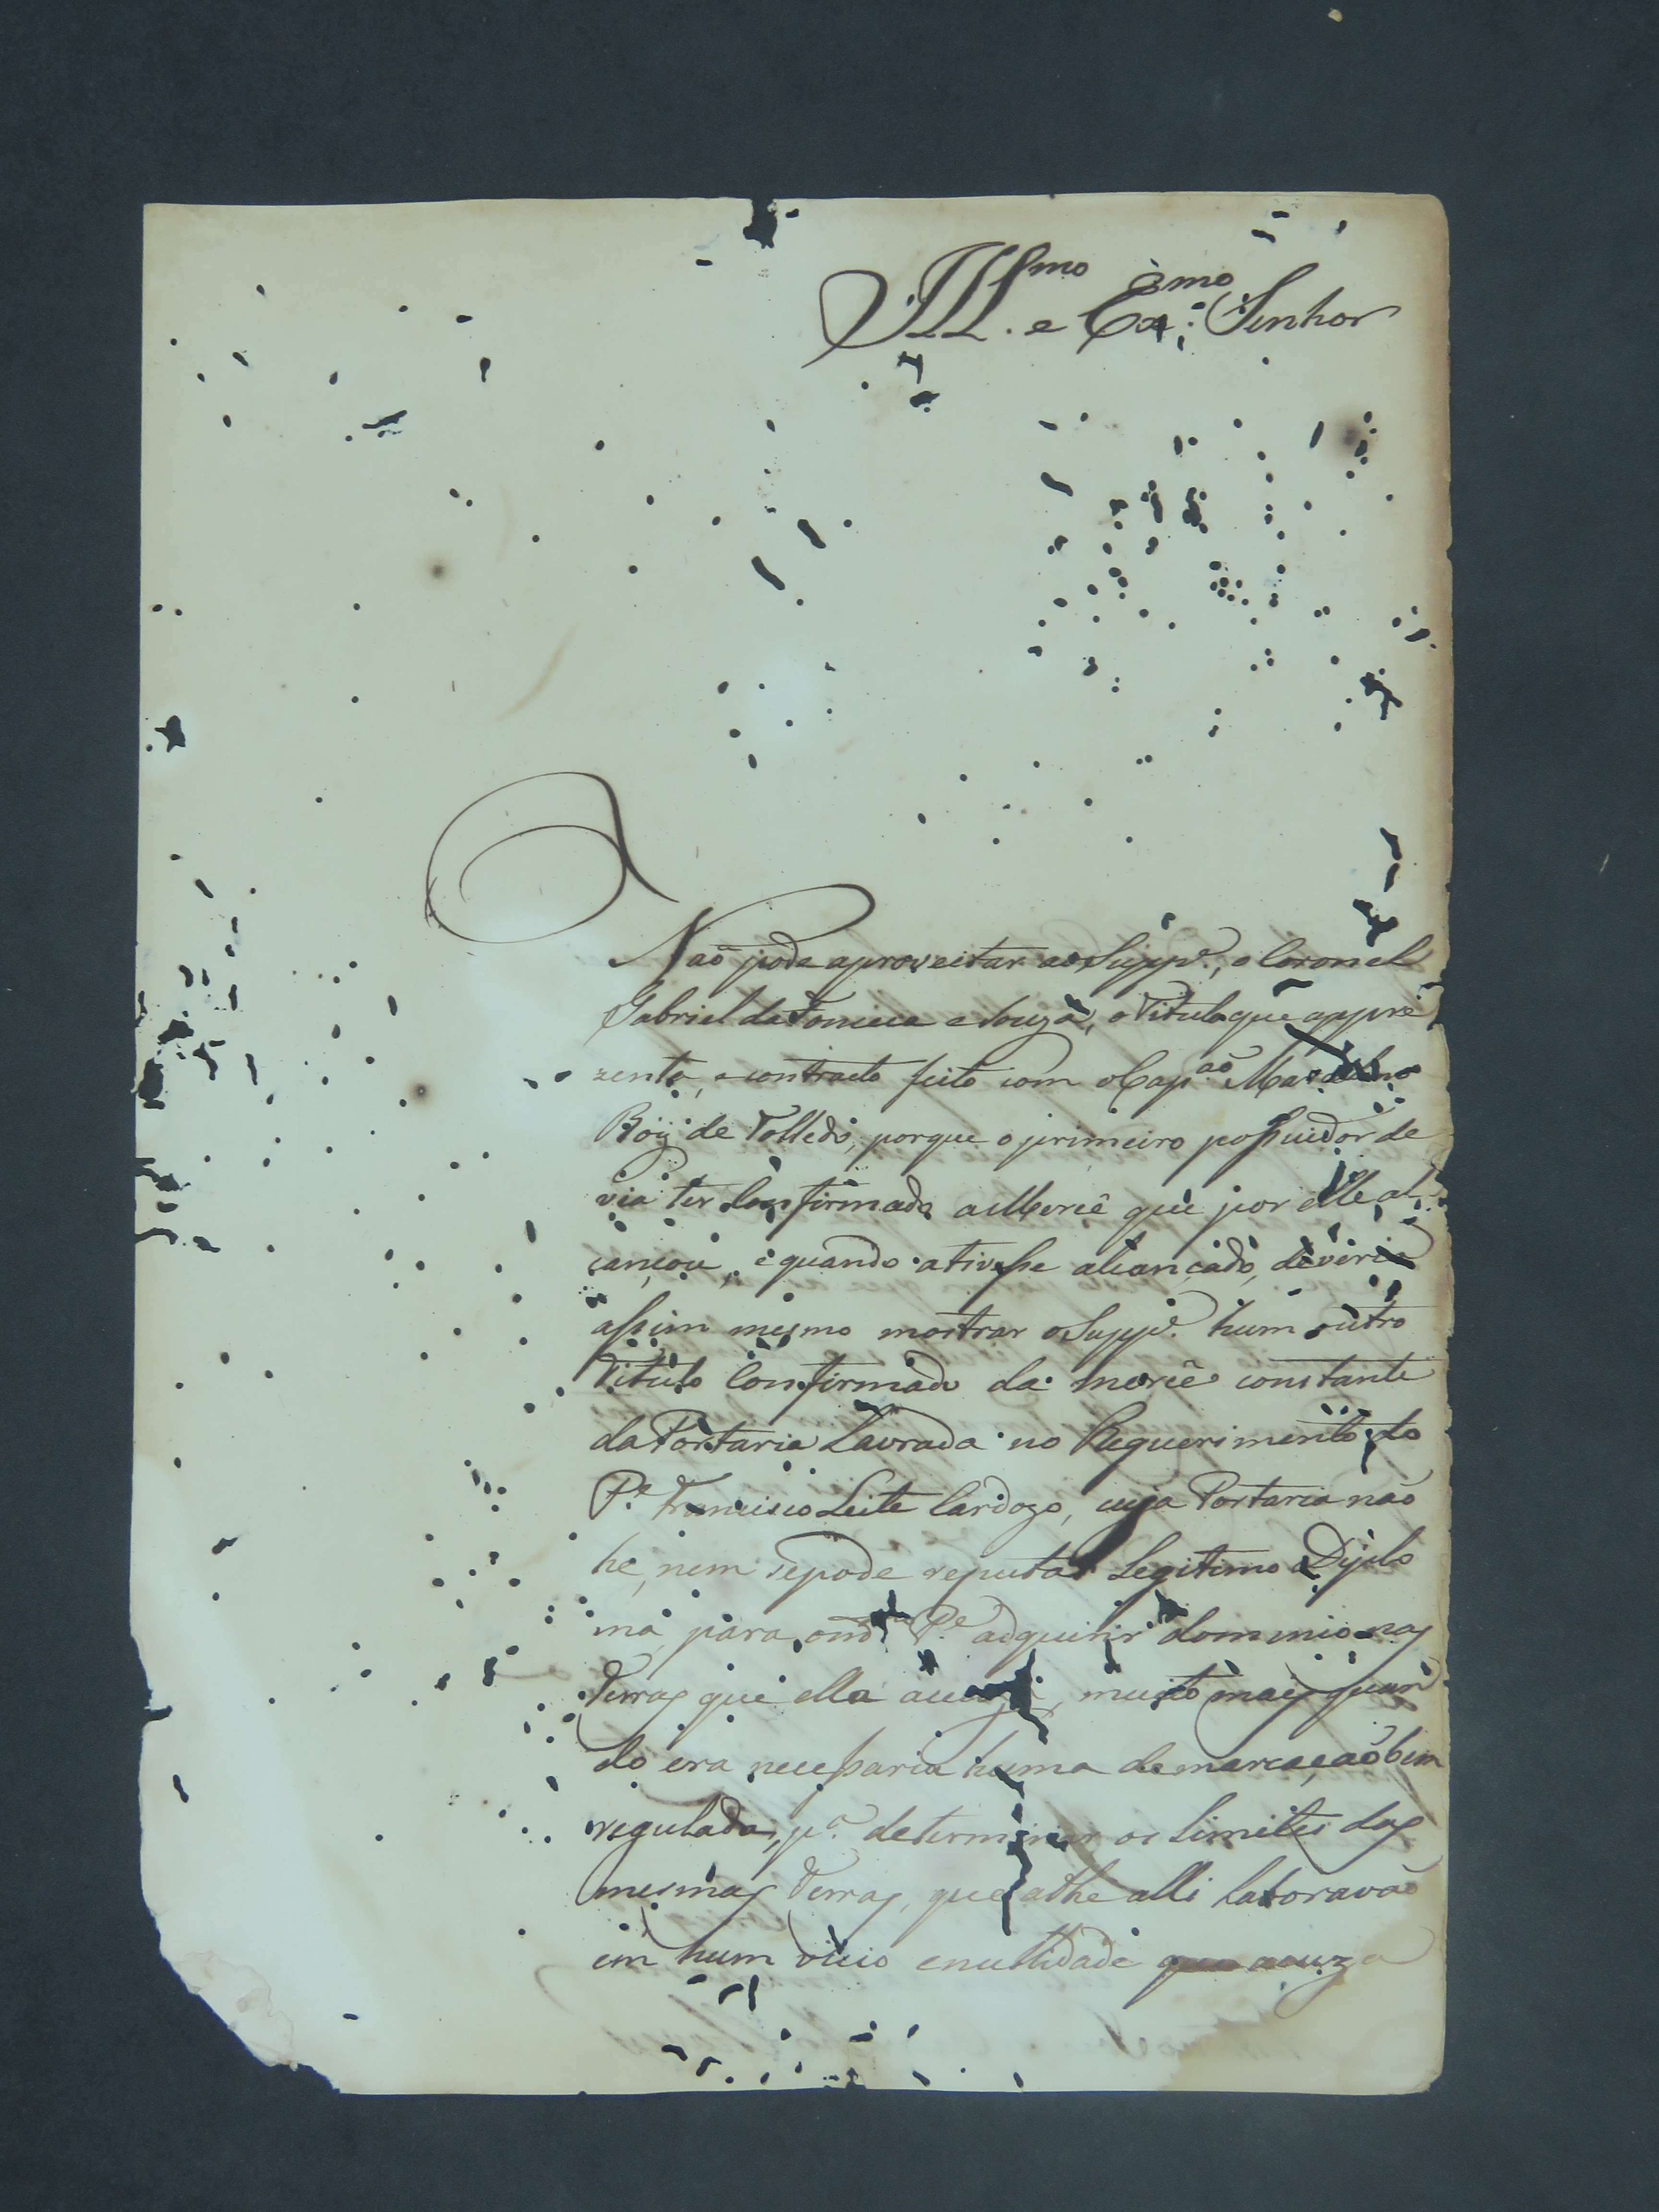 Ill.mo e Ex.mo Senhor
Naõ pode aproveitar ao Supp.e, o Coronel
Gabriel da Fonseca e Souza, o Titulo que appre
zenta, e contracto feito com o Cap.aõ
Roiz de Tolledo, porque o primeiro possuidor de
via ter Confirmada a Mercê que por elle al
cançou, e quando a tivesse alcançado, deveria
assim mesmo mostrar o Supp.e hum outro
Titulo Confirmado da mercê constante
da Portaria Lavrada no Requerimento do
P.e Francisco Leite Cardozo, cuja Portaria naõ
he, nem se pode reputar Legitimo Diplo
ma para o P.e adquirir dominio nas
Terras que ella acuza, muito mais quan
do era necessaria huma demarcaçaõ bem
regulada, p.a determinar os Limites das
mesmas Terras, que athe alli Laboravaõ
em hum vicio e nullidade que acuza